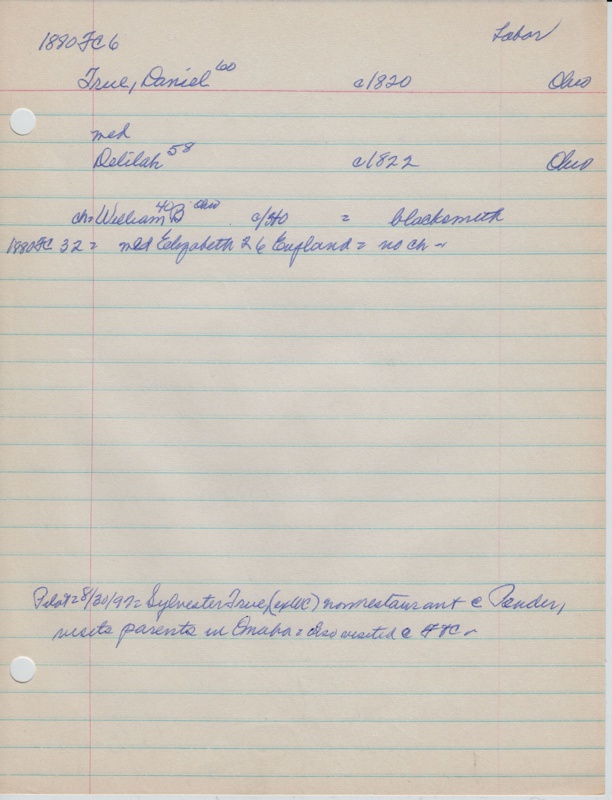 1880 FC 6 Labor
True, Daniel 60 c1820 Ohio
md
Delilah 58 c1822 Ohio
ch= William B 40 Ohio c/40 = blacksmith
1880 FC 32 = md Elizabeth 26 England = no ch -
Pilot = 8/30/97 = Sylvester True, (ex WC) now restaurant @ Pender,
visits parents in Omaha = also visited @ FtC -